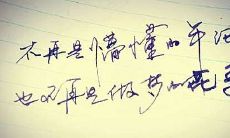 不再是懵懂的年
也不再是做梦的